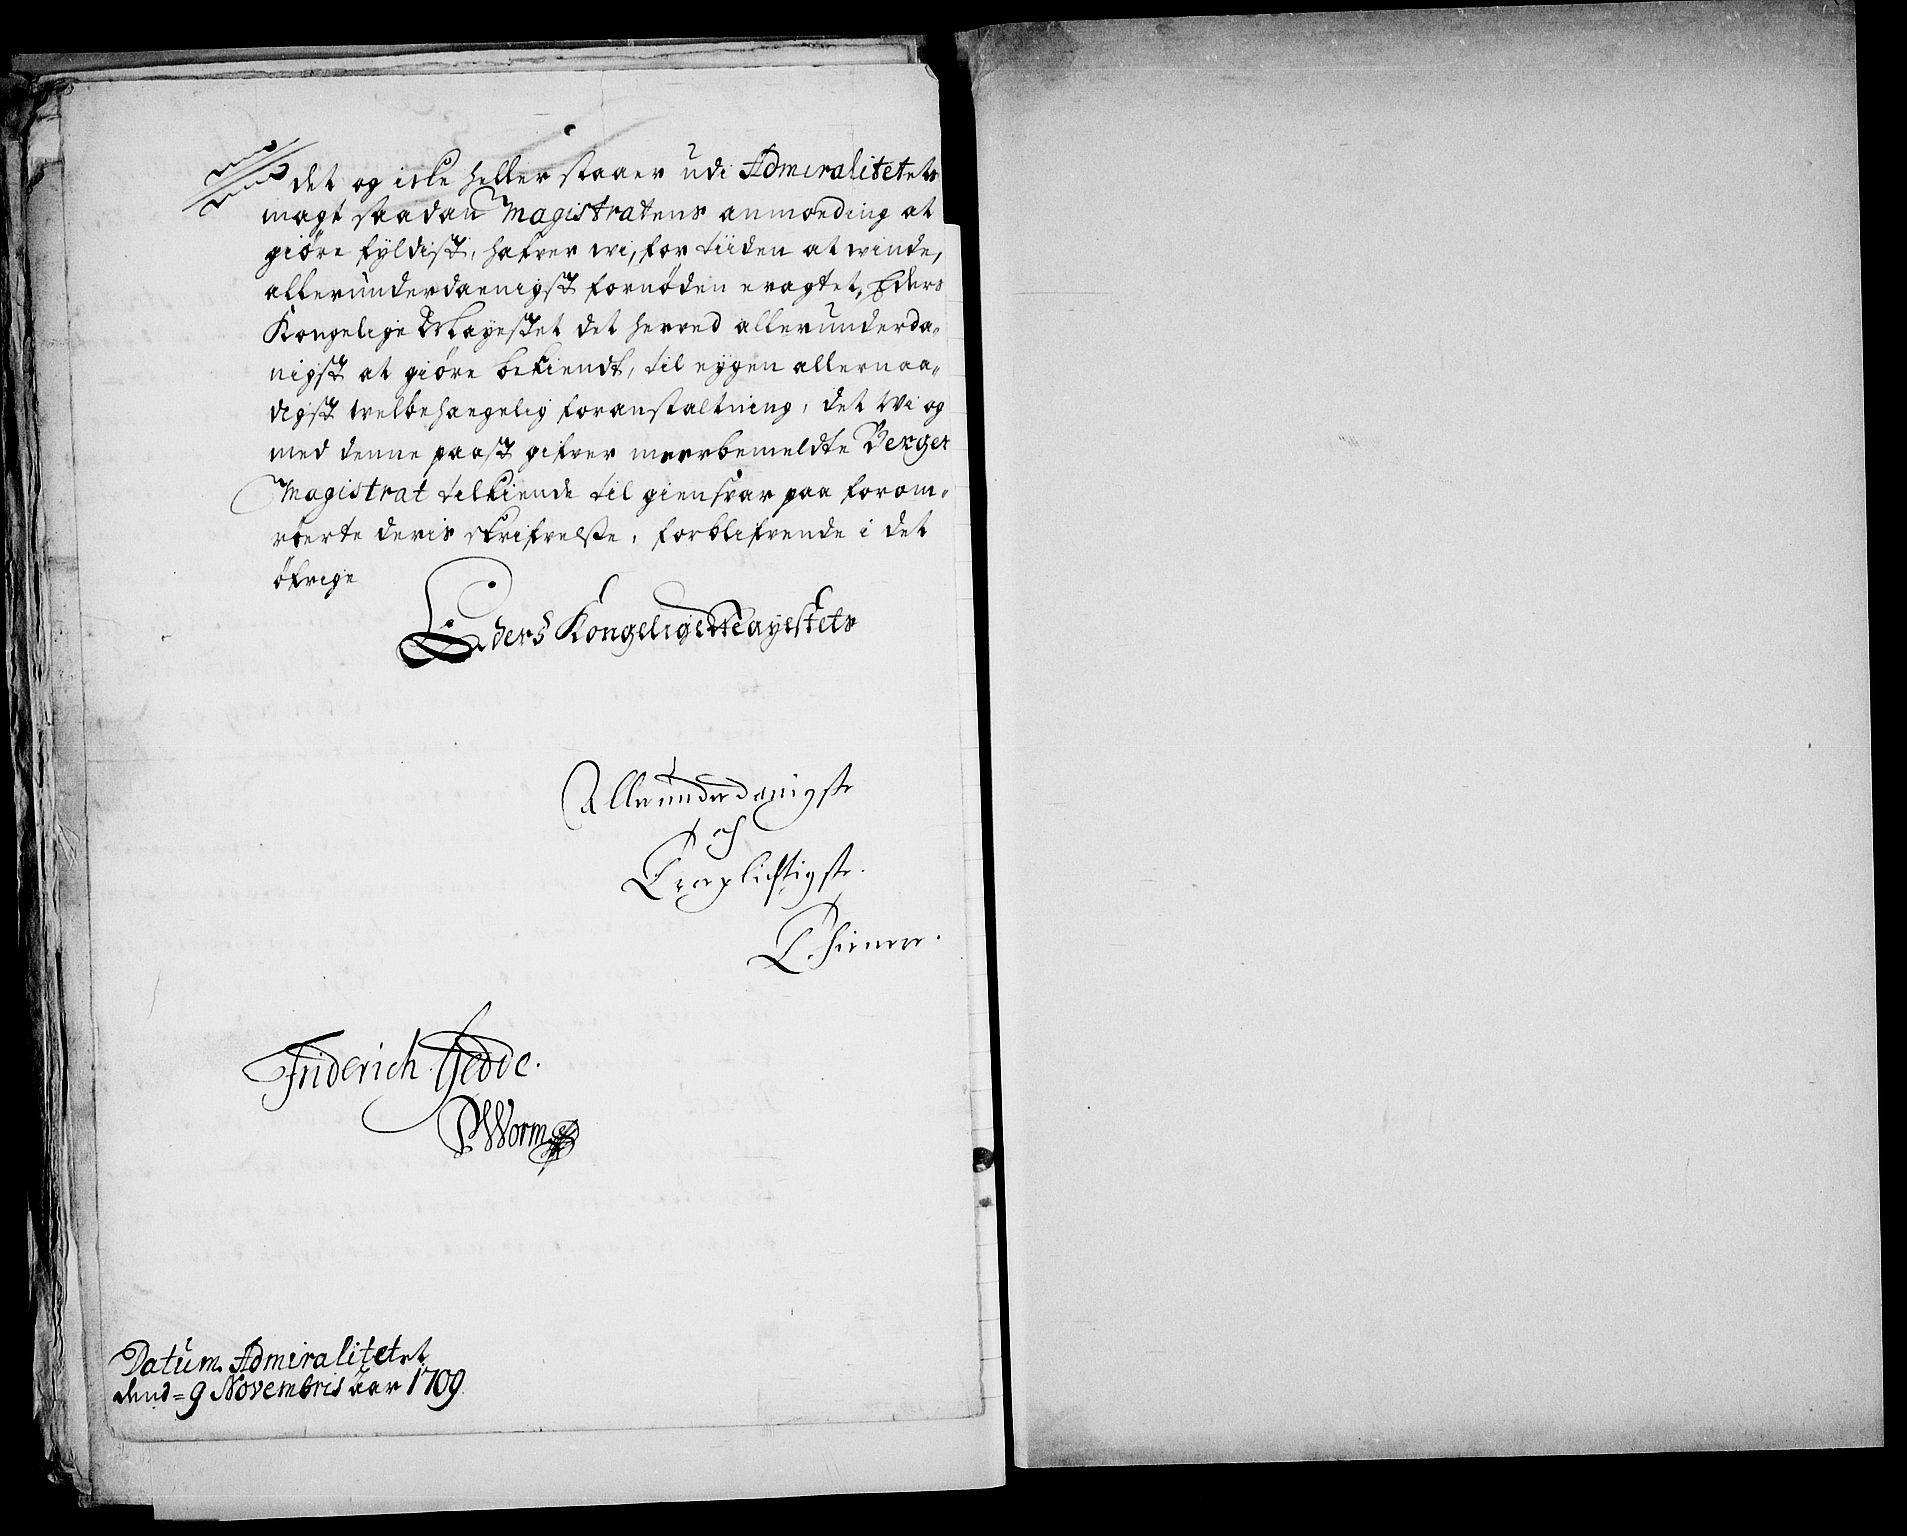 det og icke heller staaer udi Admiralitetets
magt saadan Magistratens anmoding at
giöre fyldist, hafver wi, for tiiden at winde,
allerunderdaenigst fornöden eragtet, Eders
Kongelige Mayestet det herved allerunderda-
nigst at giöre bekiendt, til eygen allernaa-
digst welbehaegelig foranstaltning, det Wi og
med denne paast gifver meerbemeldte Berger
Magistrat tilkiende til giensvar paa forom-
röerte deris skrifvelsse, forblifvende i det
öfrige
Eders Kongelige Mayestets
Allerunderdanigste
og
Troepligtigste
Thienere.
Friderich Gedde.
PWorm
Datum Admiralitetet
dend = 9 Novembris aar 1709.